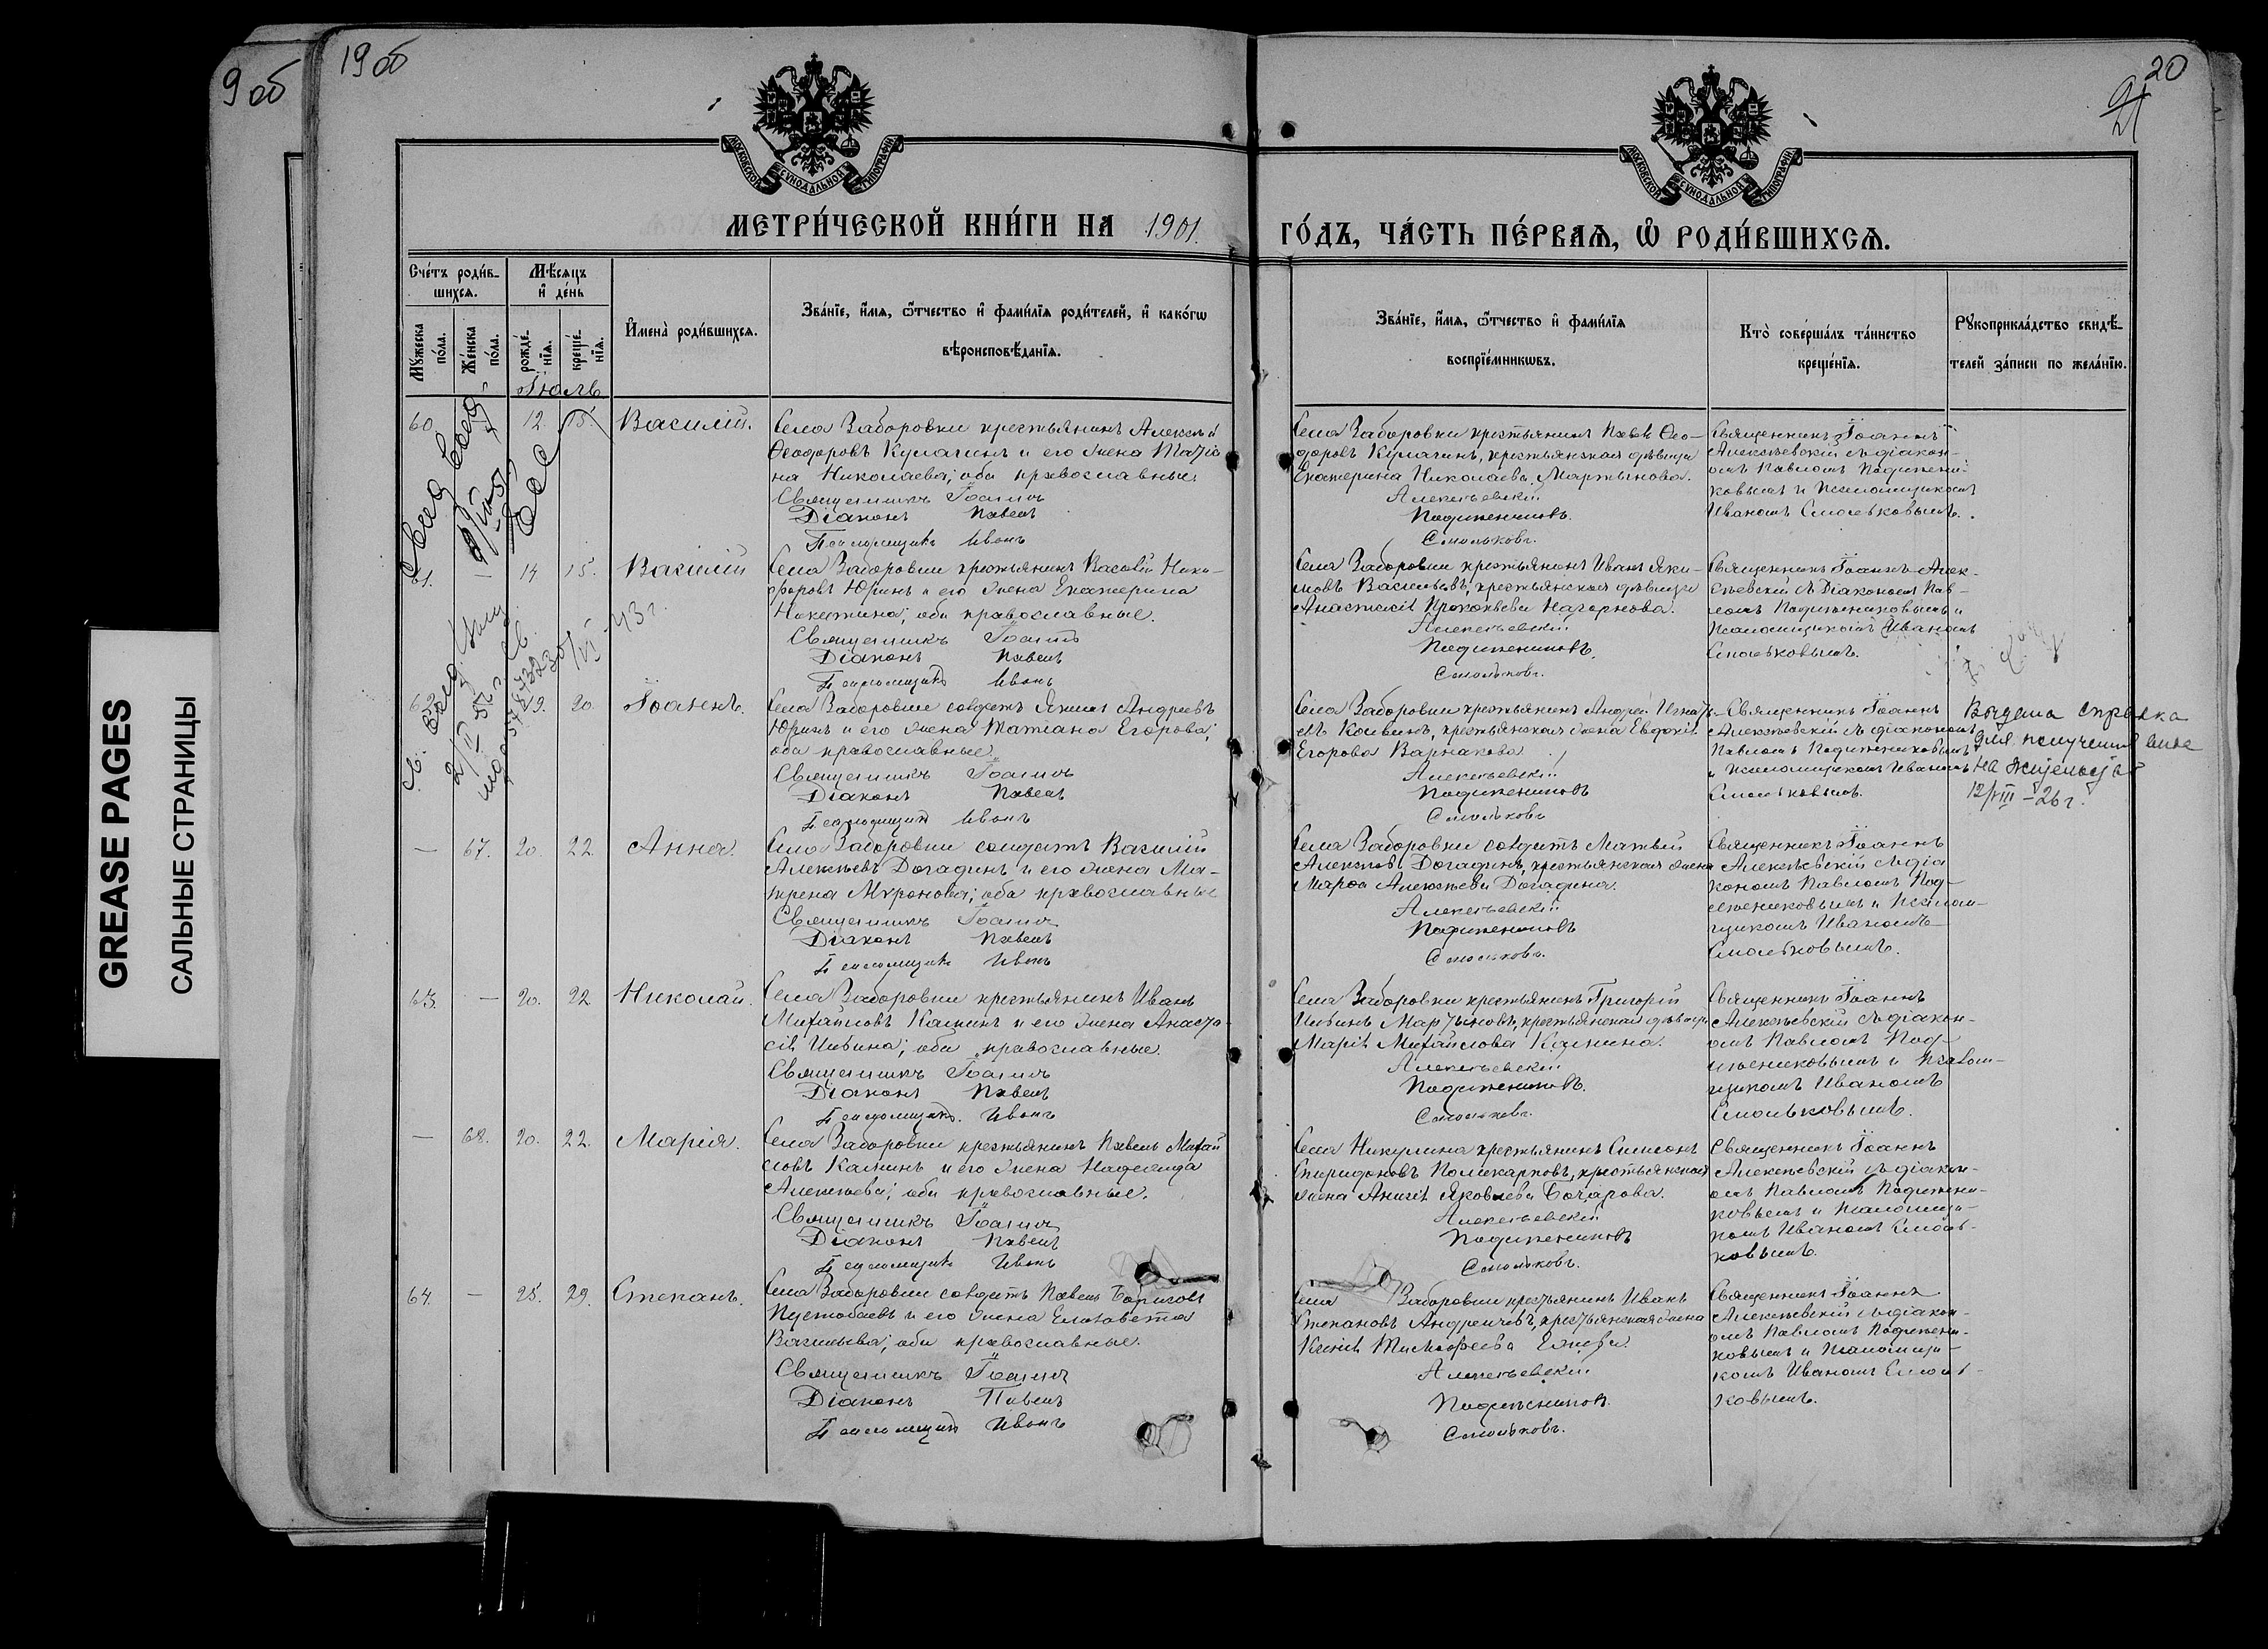 9 об
19 об
20
21
МОСКОВСКОЙ СУНОДАЛЬНОЙ ТИПОГРАФІИ
МОСКОВСКОЙ СУНОДАЛЬНОЙ ТИПОГРАФІИ
МЕТРИ́ЧЕСКОЙ КНИ́ГИ НА 1901.
ГО́ДЪ, ЧА́СТЬ ПЕ́РВАЯ, Ѡ РОДИ́ВШИХСЯ.
Сче́тъ роди́в-
шихся.
Мѣ́сяцъ
и де́нь
Мужеска по́ла.
Же́нска по́ла.
рожде́-
нїя.
креще́-
нїя.
Имена̀ роди́вшихся.
Зва́нїе, и́мя, ѻ́тчество и фами́лїя роди́телей, и како́гѡ
вѣроисповѣ́данїя.
Зва́нїе, и́мя, ѻ́тчество и фами́лїя
воспрїе́мникѡвъ.
Кто̀ соверша́лъ та́инство
креще́нїя.
Рукоприкла́дство свидѣ́-
телей за́писи по жела́нїю.
Іюль
60. — 12. 15. Василій.
Села Заборовки крестьянинъ Алексѣй
Ѳеодоровъ Кулагинъ и его жена Татіа
на Николаева; оба православные.
Священникъ Іоаннъ
Діаконъ Павелъ
Псаломщикъ Иванъ
Села Заборовки крестьянинъ Павелъ Ѳео-
доровъ Кулагинъ, крестьянская дѣвица
Екатерина Николаева Мартынова.
Алексѣевскій
Подлѣсниковъ.
Смольковъ.
Священникъ Іоаннъ
Алексѣевскій съ діакон-
омъ Павломъ Подлѣсни-
ковымъ и Псаломщикомъ
Иваномъ Смольковымъ.
61. — 14 15. Василій
Села Заборовки крестьянинъ Василій Ники-
форовъ Юринъ и его жена Екатерина
Никитина; оба православные.
Священникъ Іоаннъ
Діаконъ Павелъ
Псаломщикъ Иванъ
Села Заборовки крестьянинъ Иванъ Яки-
мовъ Васильевъ, крестьянская дѣвица
Анастасія Прокопьева Нагорнова.
Алексѣевскій
Подлѣсниковъ.
Смольковъ.
Священникъ Іоаннъ Алек-
сѣевскій съ Діакономъ Пав-
ломъ Подлѣсниковымъ и
Псаломщикомъ Иваномъ
Смольковымъ.
62. 19. 20. Іоаннъ.
Села Заборовки солдатъ Якимъ Андреевъ
Юринъ и его жена Татіана Егорова;
оба православные.
Священникъ Іоаннъ
Діаконъ Павелъ
Псаломщикъ Иванъ
Села Заборовки крестьянинъ Андрей Игнать-
евъ, крестьянская жена Евдокія
Егорова Варнакова.
Алексѣевскій
Подлѣсниковъ
Смольковъ
Священникъ Іоаннъ
Алексѣевскій съ діакономъ
Павломъ Подлѣсниковымъ
и Псаломщикомъ Иваномъ
Смольковымъ.
Выдана справка
для получения вида
на жительство
12/VIII – 26 г.
— 67. 20. 22. Анна.
Села Заборовки солдатъ Василій
Алексѣевъ Догадинъ и его жена Ма-
трена Миронова; оба православные
Священникъ Іоаннъ
Діаконъ Павелъ
Псаломщикъ Иванъ
Села Заборовки солдатъ Матвей
Алексѣевъ Догадинъ, крестьянская жена
Марѳа Алексѣева Догадина.
Алексѣевскій
Подлѣсниковъ
Смольковъ.
Священникъ Іоаннъ
Алексѣевскій съ діа
кономъ Павломъ Под-
лѣсниковымъ и Псалом-
щикомъ Иваномъ
Смольковымъ.
63. — 20. 22 Николай.
Села Заборовки крестьянинъ Иванъ
Михайловъ Калинъ и его жена Анаста-
сія Ильина; оба православные.
Священникъ Іоаннъ
Діаконъ Павелъ
Псаломщикъ. Иванъ
Села Заборовки крестьянинъ Григорій
Ильинъ Мартыновъ, крестьянская дѣвица
Марія Михайлова Калинина.
Алексѣевскій
Подлѣсниковъ.
Смольковъ.
Священникъ Іоаннъ
Алексѣевскій съ діакон-
омъ Павломъ Под-
лѣсниковымъ и Псалом-
щикомъ Иваномъ
Смольковымъ.
— 68. 20. 22. Марія.
Села Заборовки крестьянинъ Павелъ Михай
ловъ Калинъ и его жена Надежда
Алексѣева; оба православные.
Священникъ Іоаннъ
Діаконъ Павелъ
Псаломщикъ Иванъ
Села Никулина крестьянинъ Симеонъ
Спиридоновъ Поликарповъ, крестьянская
жена Анисія Яковлева Бочарова.
Алексѣевскій
Подлѣсниковъ
Смольковъ.
Священникъ Іоаннъ
Алексѣевскій съ діакон-
омъ Павломъ Подлѣсни-
ковымъ и Псаломщи-
комъ Иваномъ Смоль-
ковымъ.
64. — 25. 29. Степанъ.
Села Заборовки солдатъ Павелъ Борисовъ
Пустобаевъ и его жена Елизавета
Васильева; оба православные.
Священникъ Іоаннъ
Діаконъ Павелъ
Псаломщикъ Иванъ
Села Заборовки крестьянинъ Иванъ
Степановъ Андреичевъ, крестьянская жена
Ксенія Тимофеева
Алексѣевскій
Подлѣсниковъ.
Смольковъ.
Священникъ Іоаннъ
Алексѣевскій съ діакон-
омъ Павломъ Подлѣсни-
ковымъ и Псаломщи-
комъ Иваномъ Смоль-
ковымъ.
GREASE PAGES
САЛЬНЫЕ СТРАНИЦЫ